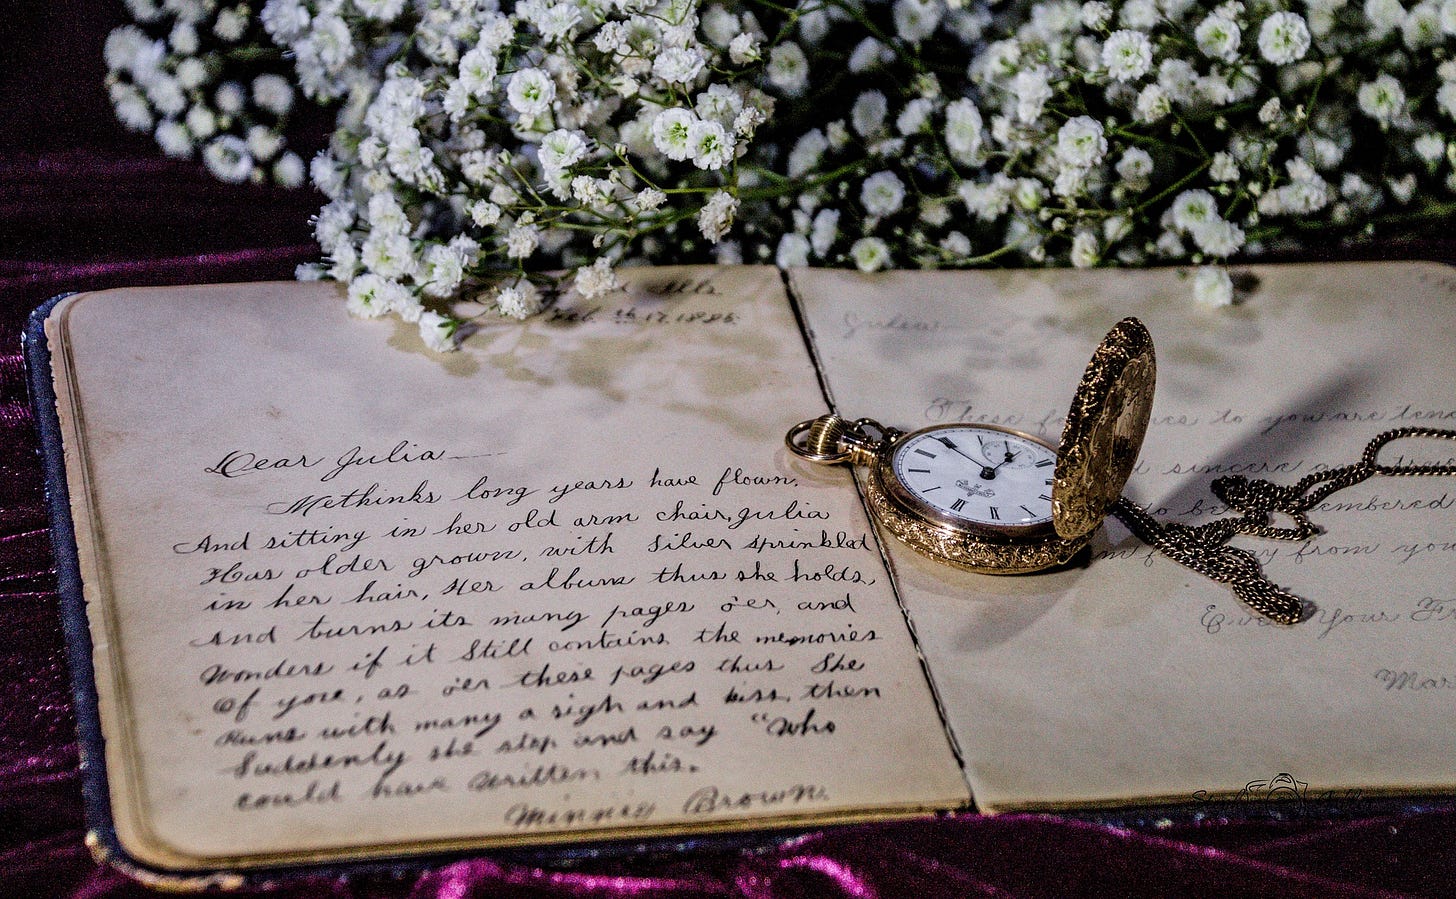 lls
Feb. 17, 1886
Dear Julia
Methinks long years have flown,
And sitting in her old arm chair, Julia
Has older grown, with Silver sprinkled
in her hair, Her album thus she holds,
And turns its many pages o'er, and
Wonders if it Still contains the memories
Of yore, as o'er these pages thus She
Runs with many a sigh and kiss, then
Suddenly she stop and say "Who
could have written this.
Minnie Brown.
Julia
These to you are
sincere
to be embered
from you
Your
Mar